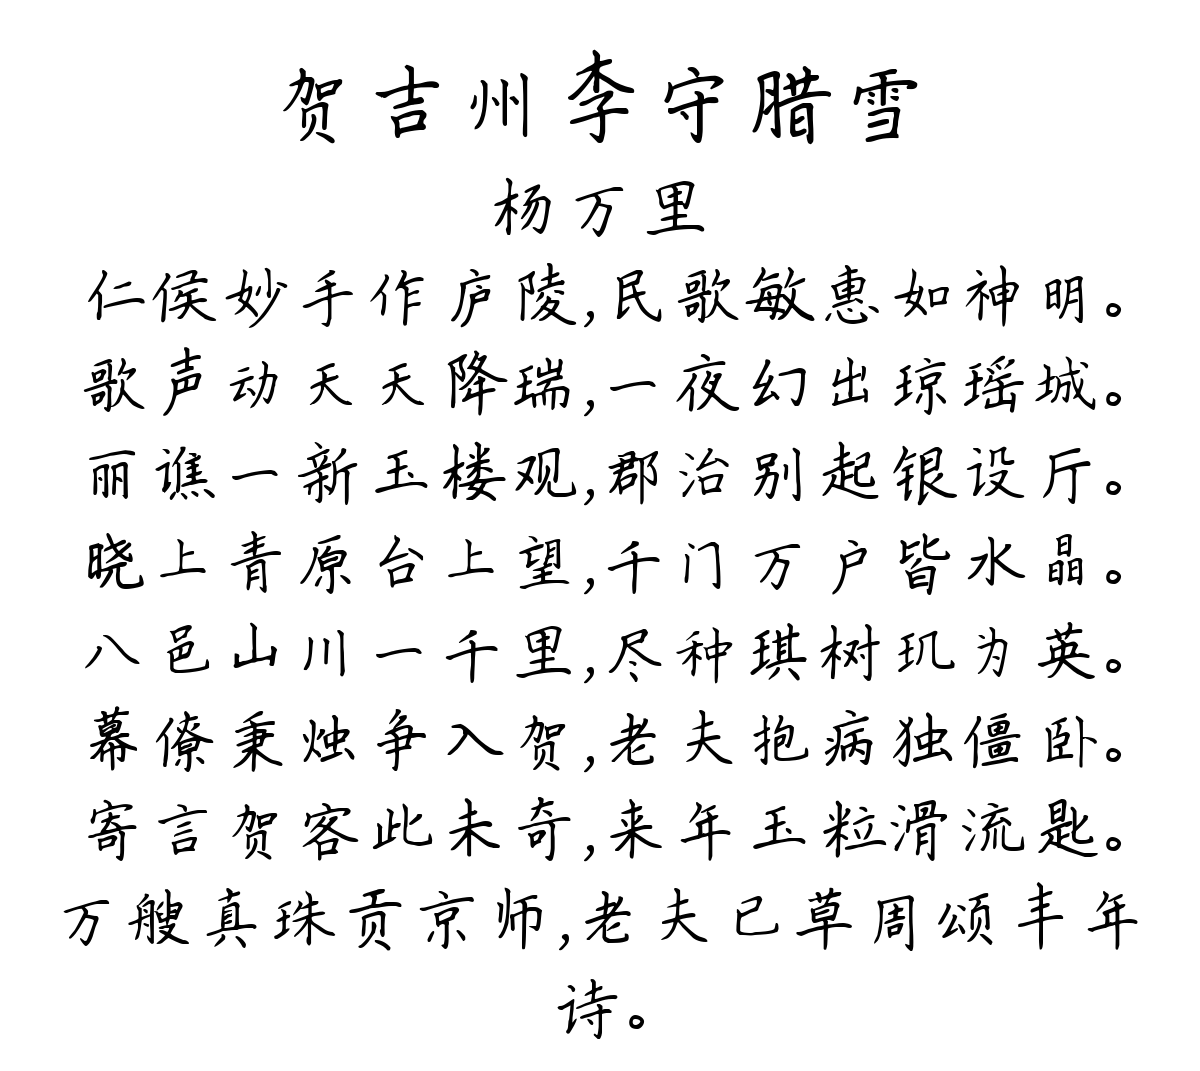 贺吉州李守腊雪
杨万里
仁侯妙手作庐陵,民歌敏惠如神明。
歌声动天天降瑞,一夜幻出琼瑶城。
丽谯一新玉楼观,郡治别起银设厅。
晓上青原台上望,千门万户皆水晶。
八邑山川一千里,尽种琪树玑为英。
幕僚秉烛争入贺,老夫抱病独僵卧。
寄言贺客此未奇,来年玉粒滑流匙。
万艘真珠贡京师,老夫已草周颂丰年
诗。